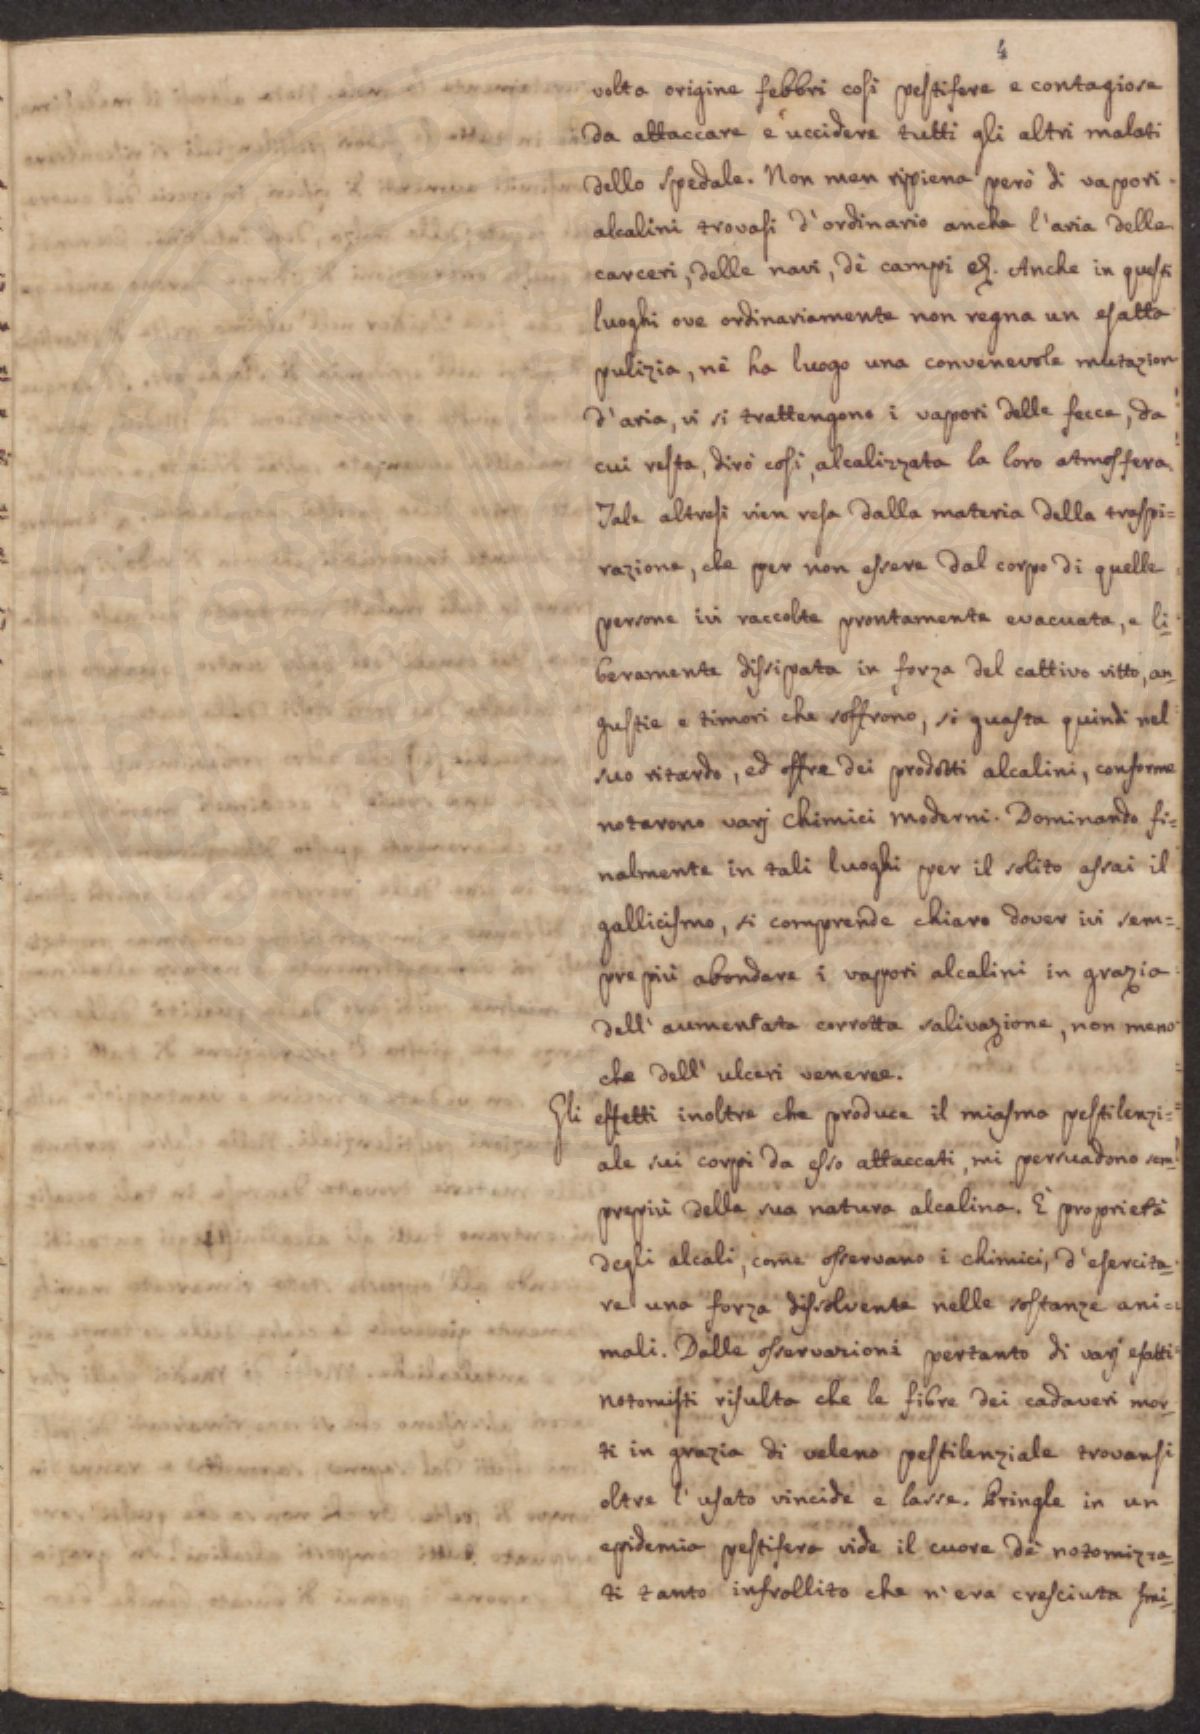 4
volta origine febbri così pestifere e contagiose
da attaccare e uccidere tutti gli altri malati
dello spedale. Non men ripiena però di vapori
alcalini trovasi d'ordinario anche l'aria delle
carceri, delle navi, de' campi &. Anche in questi
luoghi ove ordinariamente non regna un esatta
pulizia, nè ha luogo una convenevole mutazion
d'aria, vi si trattengono i vapori delle fecce, da
cui resta, dirò così, alcalizzata la loro atmosfera.
Tale altresì vien resa dalla materia della traspi=
razione, che per non essere dal corpo di quelle
persone ivi raccolte prontamente evacuata, e li=
beramente dissipata in forza del cattivo vitto, an=
gustie e timori che soffrono, si guasta quindi nel
suo ritardo, ed offre dei prodotti alcalini, conforme
notarono varj chimici moderni. Dominando fi=
nalmente in tali luoghi per il solito assai il
gallicismo, si comprende chiaro dover ivi sem=
prepiù abondare i vapori alcalini in grazia
dell'aumentata corrotta salivazione, non meno
che dell'ulceri veneree.
Gli effetti inoltre che produce il miasma pestilenzi=
ale sui corpi da esso attaccati, mi persuadono sem=
prepiù della sua natura alcalina. È proprietà
degli alcali, come osservano i chimici, d'esercita=
re una forza dissolvente nelle sostanze ani=
mali. Dalle osservazioni pertanto di varj esatti
notomisti risulta che le fibre dei cadaveri mor=
ti in grazia di veleno pestilenziale trovansi
oltre l'usato vincide e lasse. Pringle in un
epidemia pestifera vide il cuore de' notomizza=
ti tanto infrollito che n'era cresciuta smi=